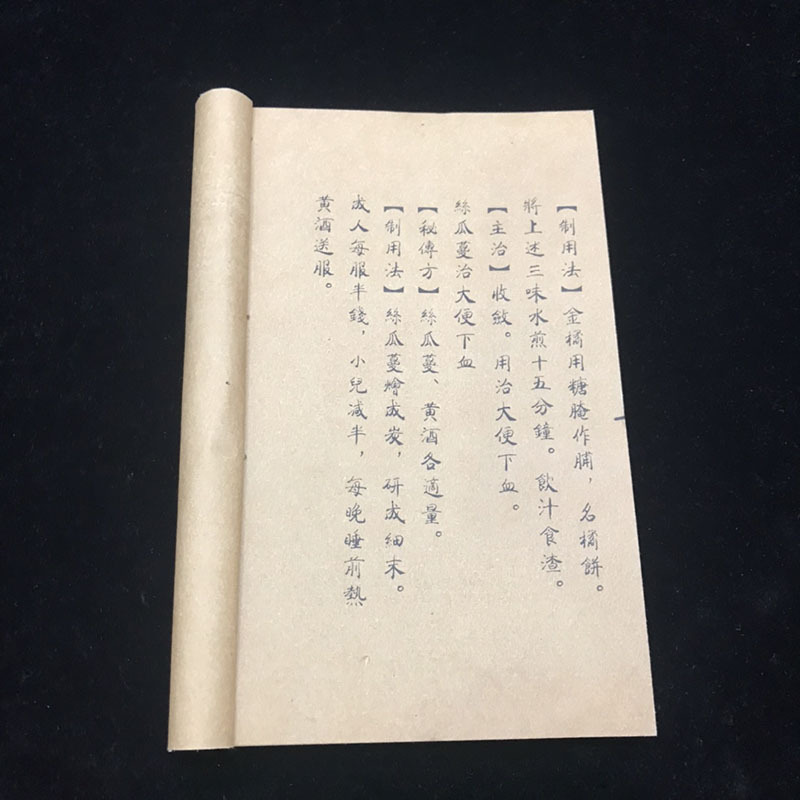 【制用法】金橘用糖腌作脯，名橘餅。
將上述三味水煎十五分鐘。飲汁食渣。
【主治】收斂。用治大便下血。
絲瓜蔓治大便下血
【秘傳方】絲瓜蔓、黃酒各適量。
【制用法】絲瓜蔓燴成炭，研成細末。
成人每服半錢，小兒減半，每晚睡前熱
黃酒送服。